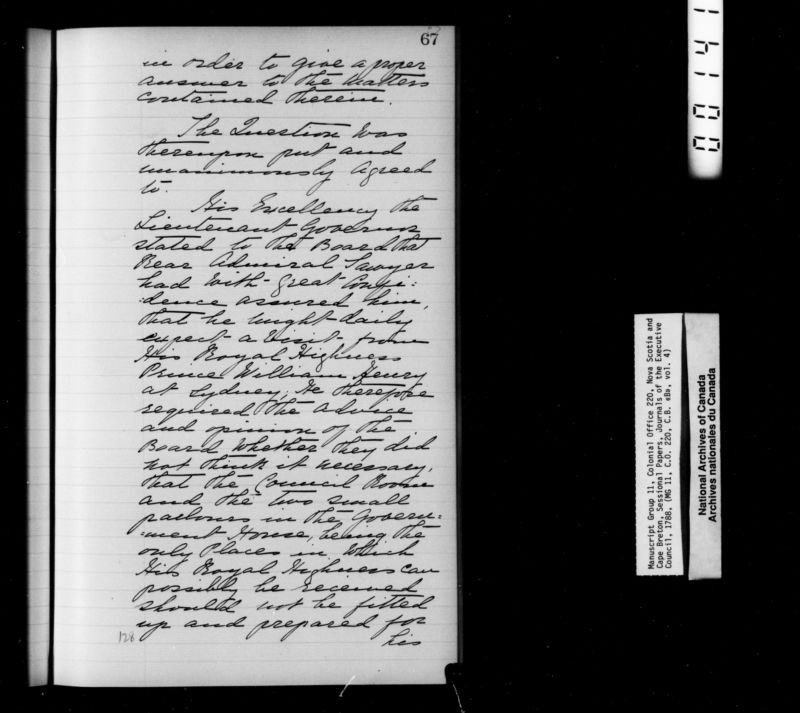 67
in order to give a proper
answer to the matters
contained therein.
The Question was
thereupon put and
unanimously agreed
to.
His Excellency the
Lieutenant Governor
stated to the Board that
Rear Admiral Sawyer
had with great Confi:
:dence assured him,
that he might daily
expect a visit from
His Royal Highness
Prince William Henry
at Sydney, He therefore
required the advice
and opinion of the
Board whether they did
not think it necessary,
that the Council Room
and the two small
parlours in the Govern:
:ment House, being the
only Places in which
His Royal Highness can
possibly be received
should not be fitted
up and prepared for
his
128
00141
Manuscript Group 11, Colonial Office 220, Nova Scotia and
Cape Breton, Sessional Papers, Journals of the Executive
Council, 1788, (MG 11, C.O. 220, C.B. «B», vol. 4)
National Archives of Canada
Archives nationales du Canada